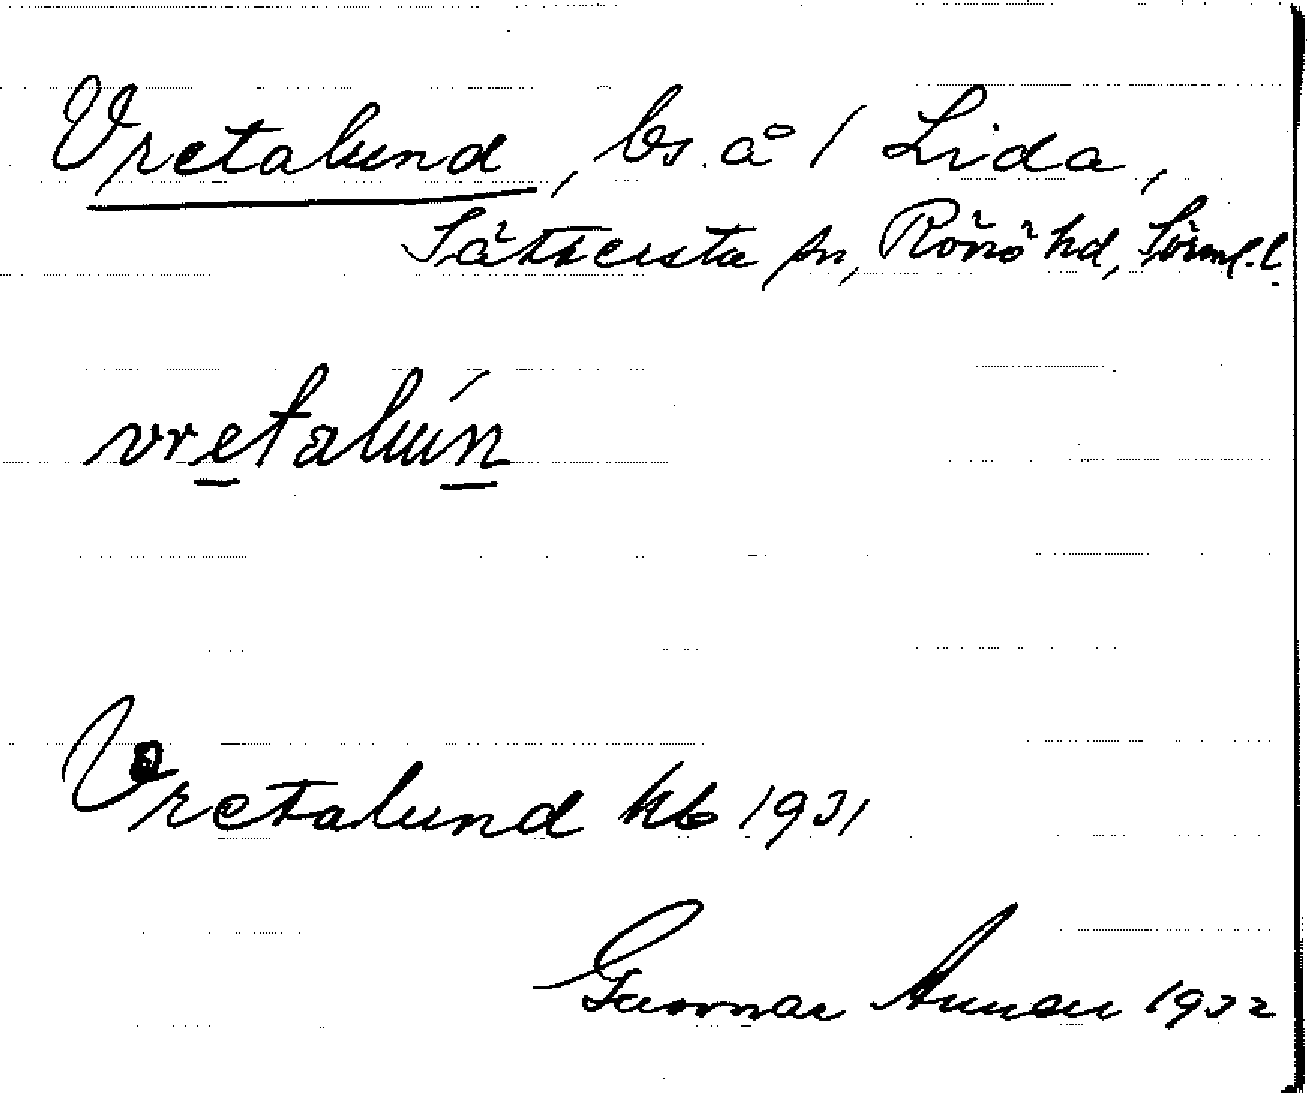 Vretalund, bs. å 1 Lida,
Sättersta sn, Rönö hd, Sörml. l.
vretalún
Vretalund kb 1931
Gunnar 1932